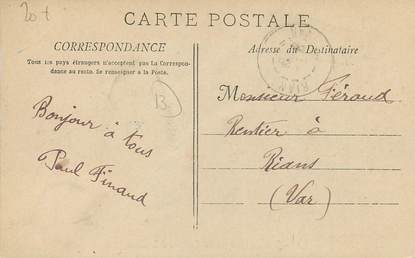 20t
CARTE POSTALE
CORRESPONDANCE
Tous les pays étrangers n'acceptent pas La Correspon-
dance au recto. Se renseigner à la Poste.
Adresse du Destinataire
13
Bonjour à tous
Paul Finaud
Monsieur Féraud
Rentier à
Rians
(Var)